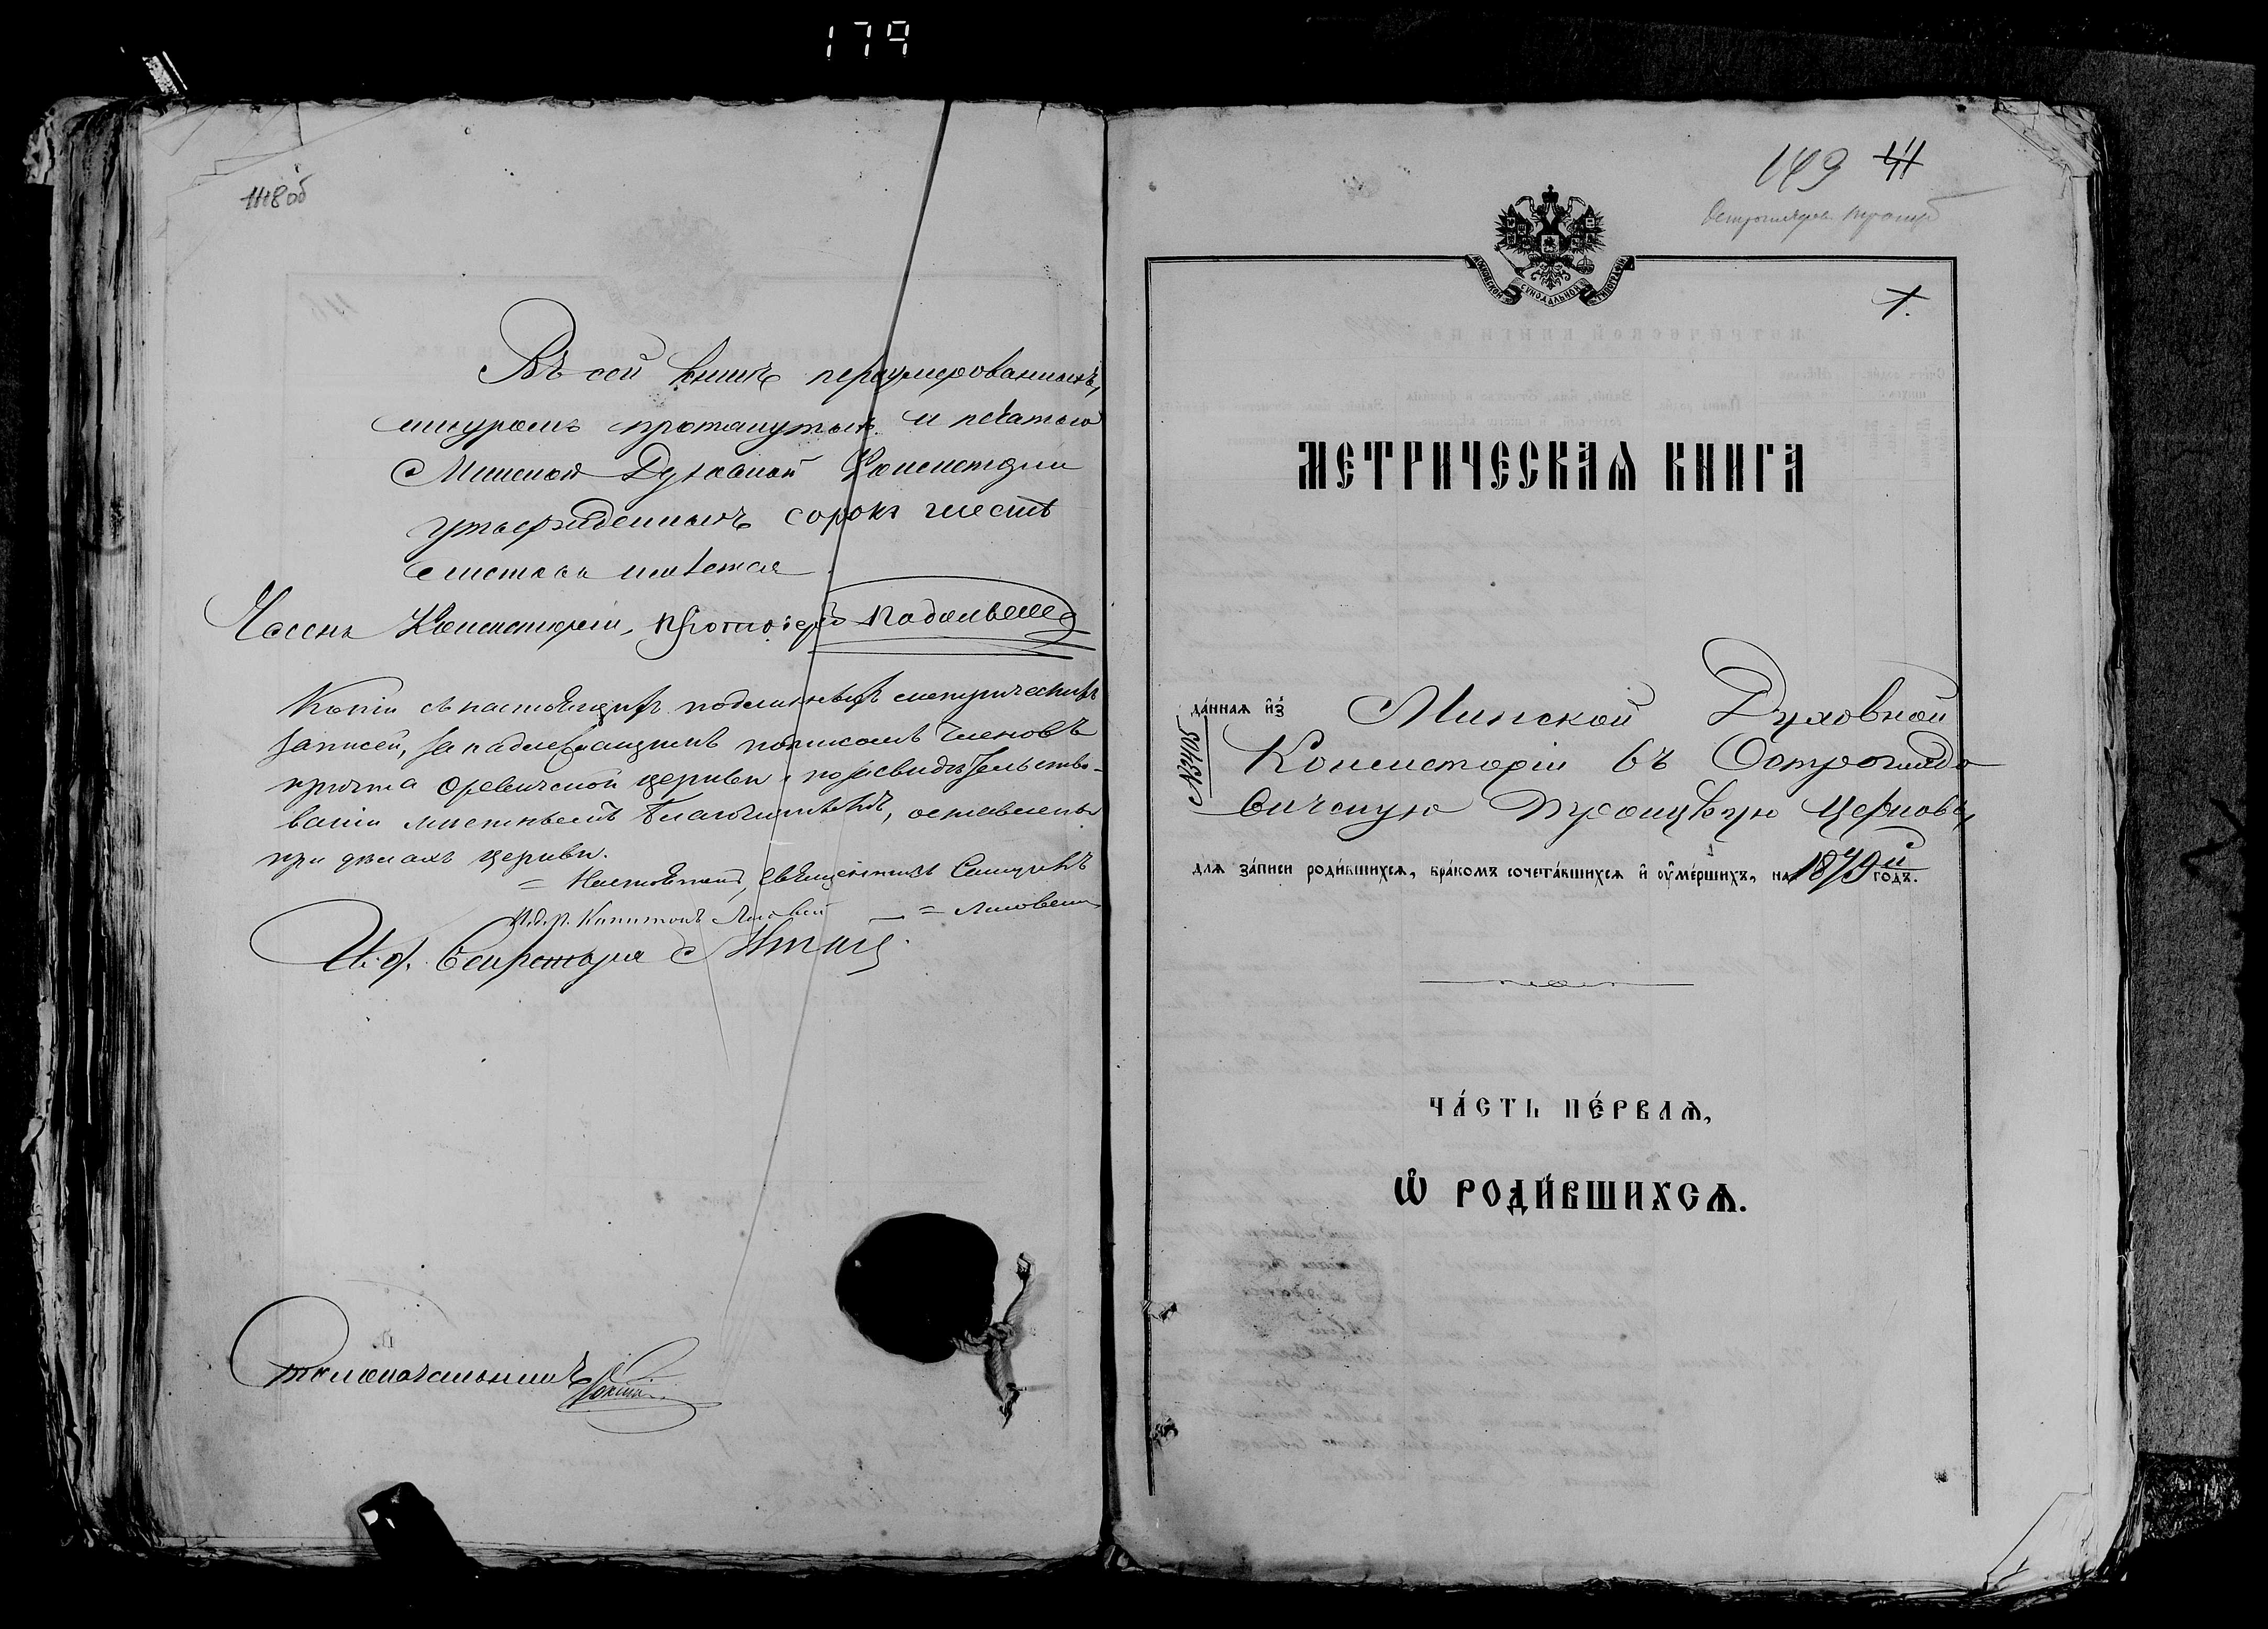 179
148 об
Въ сей книгѣ перенумерованныхъ,
шнуромъ протянутыхъ и печатью
Минской Духовной Консисторіи
утвержденныхъ сорокъ шесть
листовъ имѣется
Членъ Консисторіи, Протоіерей
Копіи съ настоящихъ подлинныхъ метрическихъ
записей, за надлежащимъ подписомъ членовъ
причта Оревичской церкви и по засвидѣтельство-
ваніи мѣстнымъ Благочиннымъ, оставлены
при дѣлахъ церкви.
= Настоятель, Священникъ
И. д. п. Капитонъ
И. д. Секретаря
Столоначальникъ
149 41
МОСКОВСКОЙ СѴНОДАЛЬНОЙ ТИПОГРАФІИ
МЕТРИЧЕСКАѦ КНИГА
да́ннаѧ и҆з̾ Минской Духовной
№3405
Консисторіи въ Острогляdo
вичскую Троицкую Церковь
для за́писи роди́вшихсѧ, бра́комъ сочета́вшихсѧ и҆ ᲂу҆ме́ршихъ, на 1879й годъ.
ЧА́СТЬ ПЕ́РВАѦ,
Ѽ РОДИ́ВШИХСѦ.